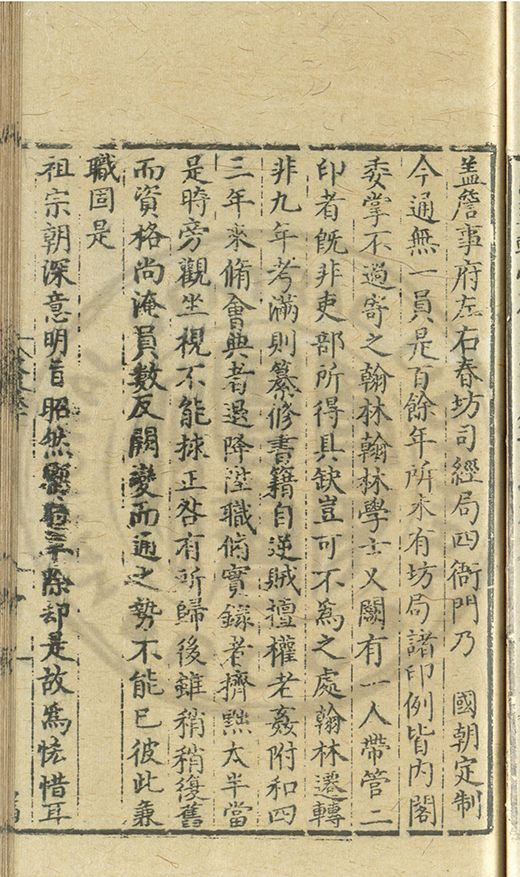 盖詹事府左右春坊司經局四衙門乃 國朝定制
今通無一員是百餘年所未有坊局諸印例皆内閣
委掌不過寄之翰林翰林學士又闕有一人帶管二
印者既非吏部所得具缺豈可不為之處翰林遷轉
非九年考滿則纂修書籍自逆賊擅權老姦附和四
三年来脩會典者退降陞職脩實錄者擠黜太半當
是時旁觀坐視不能捄正咎有所歸後雖稍稍復舊
而資格尚淹員數反闕變而通之勢不能已彼此兼
職固是
祖宗朝深意明旨昭然除却是故爲恡惜耳